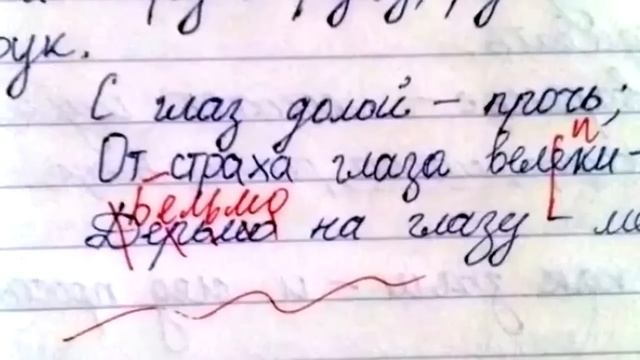 рук.
С глаз долой – прочь;
и
От страха глаза велеки –
Бельмо
Дерьмо на глазу –